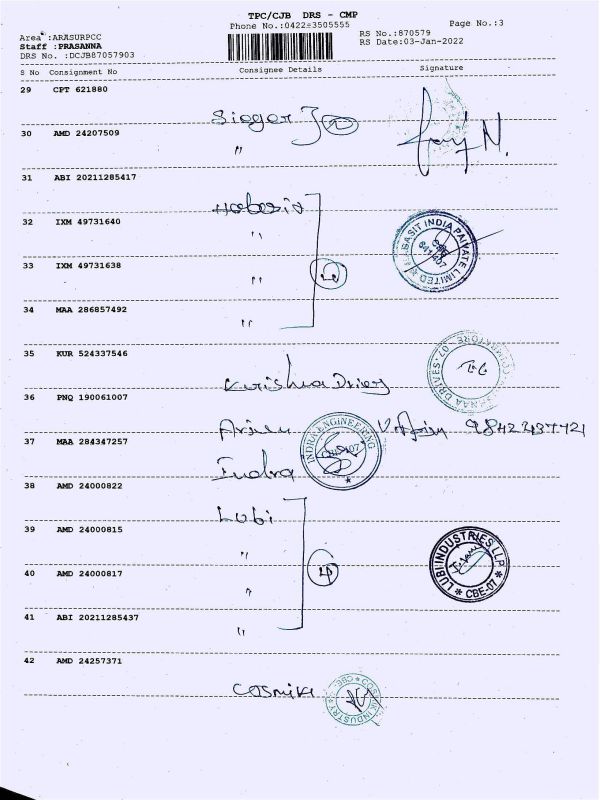 TPC/CJB DRS - CMP
Phone No.:0422-3505555
Page No.:3
Area :ARASURPCC
Staff :PRASANNA
DRS No. :DCJB87057903
RS No.:870579
RS Date:03-Jan-2022
S No Consignment No Consignee Details Signature
29 CPT 621880
Sieger 2
30 AMD 24207509
"
31 ABI 20211285417
32 IXM 49731640
"
BASIT INDIA PRIVATE LIMITED
641 407
33 IXM 49731638
"
34 MAA 286857492
"
35 KUR 524337546
Krishna Drives
36 PNQ 190061007
37 MAA 284347257
INDRA ENGINEERING
Indra
38 AMD 24000822
Lubi
39 AMD 24000815
"
LUBI INDUSTRIES LLP
* CBE-07 *
40 AMD 24000817
"
4
41 ABI 20211285437
"
42 AMD 24257371
Cosmik
COSMIK INDUSTRY * CBE